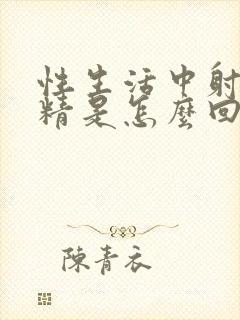 性生活中射
精是怎麼回
陳青衣